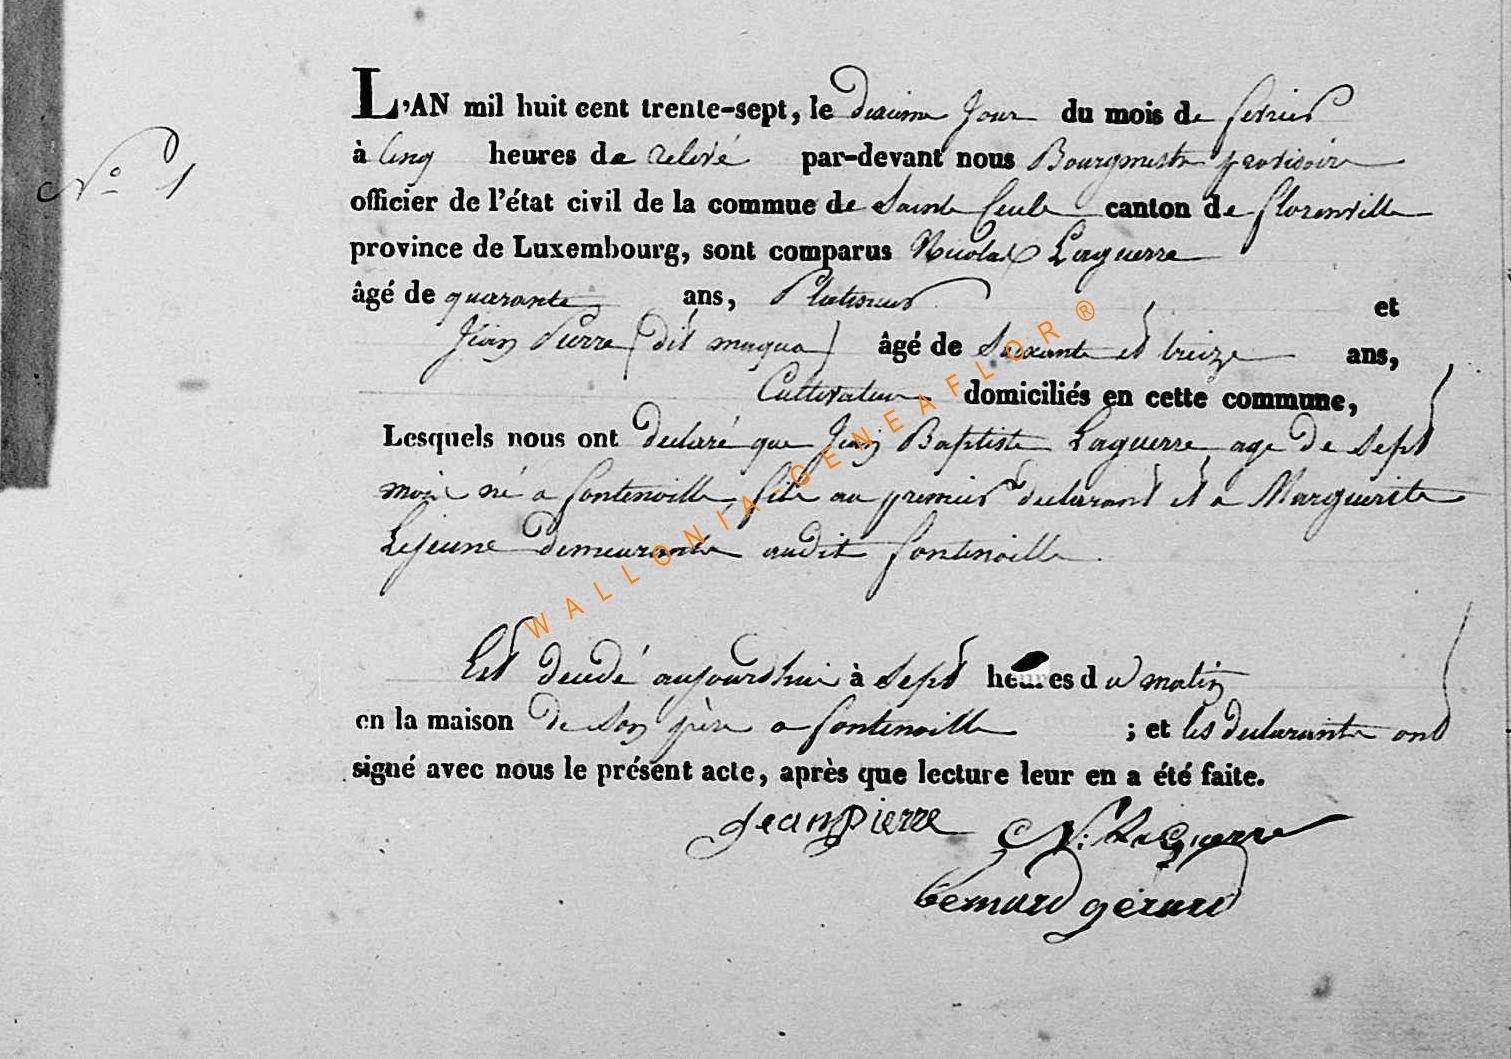 L'AN mil huit cent trente-sept, le dixieme Jour du mois de fevrier
N° 1
à cinq heures de relevé par-devant nous Bourgmestre provisoire
officier de l'état civil de la commue de Sainte Cecile canton de florenville
province de Luxembourg, sont comparus Nicolas Laguerre
âgé de quarante ans, et
Jean Pierre (dit maqua) âgé de Soixante et treize ans,
Cultivateur domiciliés en cette commune,
Lesquels nous ont declaré que Jean Baptiste Laguerre age de Sept
mois né a fontenoille, fils au premier declarant et a Marguerite
Lejeune demeurante audit fontenoille
Est decedé aujourdhui à Sept heures du matin
en la maison de Son père a fontenoille ; et les declarants ont
signé avec nous le présent acte, après que lecture leur en a été faite.
Jean Pierre N: LaGuerre
bernard gérard
WALLONIA-GENEAFLOR®